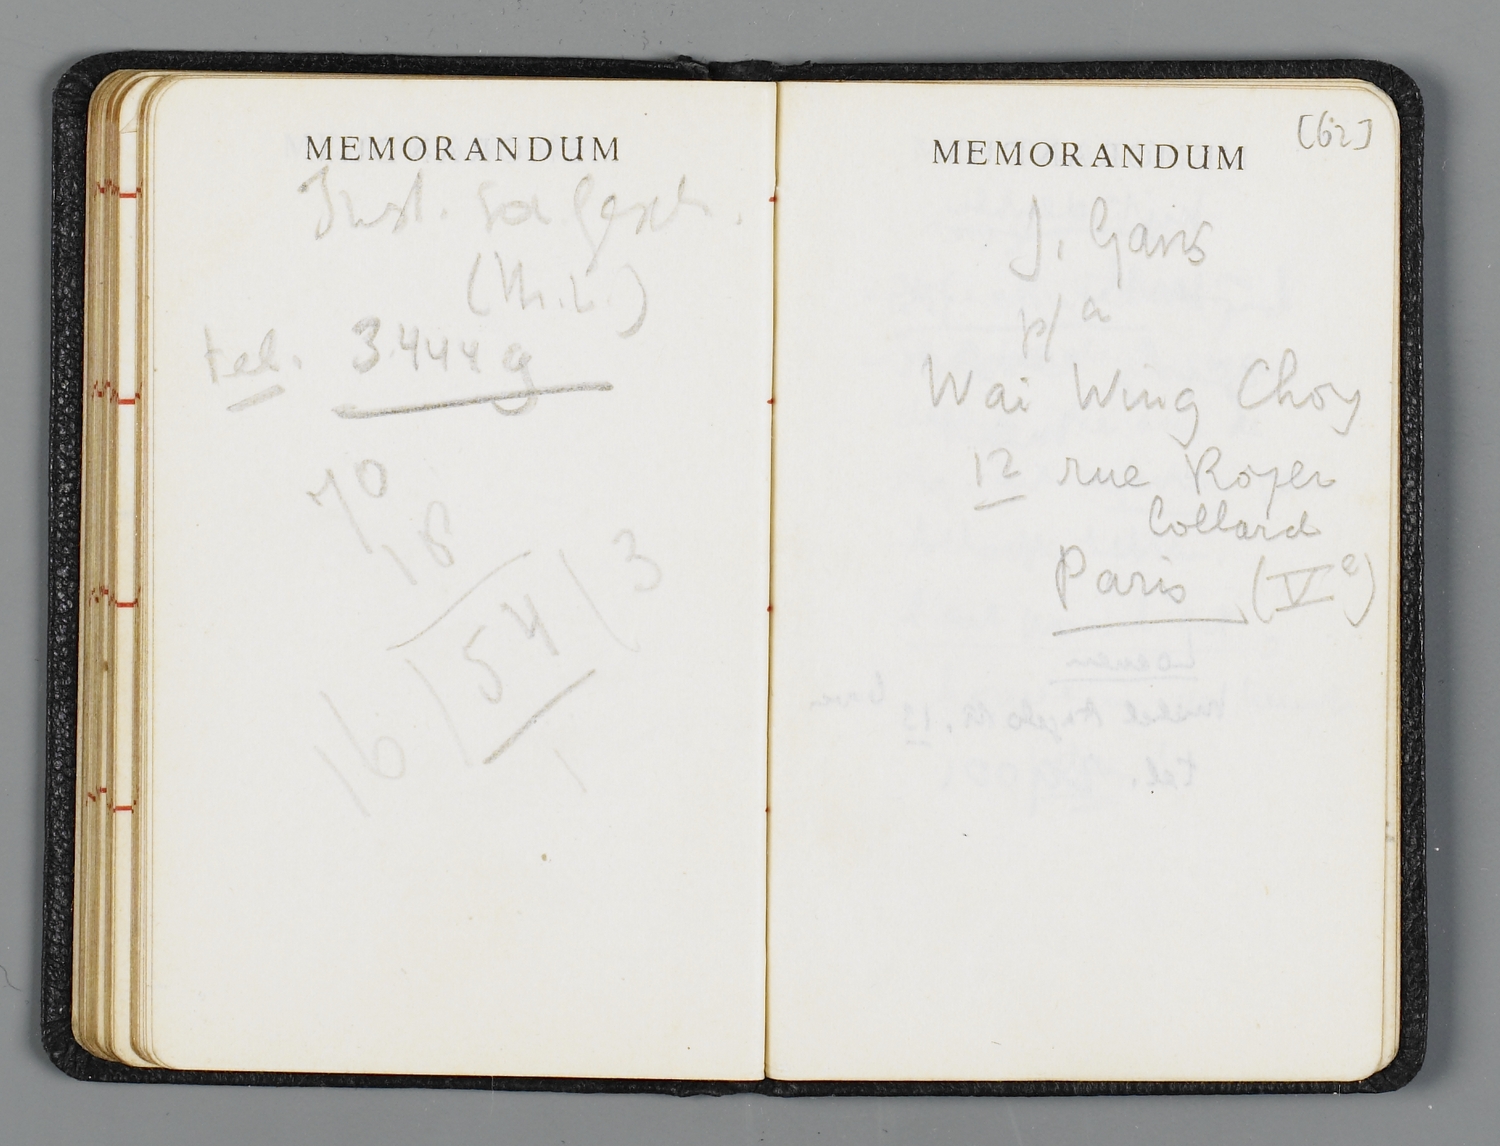 MEMORANDUM
Inst. soc gesch.
tel. 3444 g
70
18
16 / 54 / 3
1
MEMORANDUM
[62]
J. Gans
p/a
Wai Wing Choy
12 rue Royer
Collard
Paris (Ve)